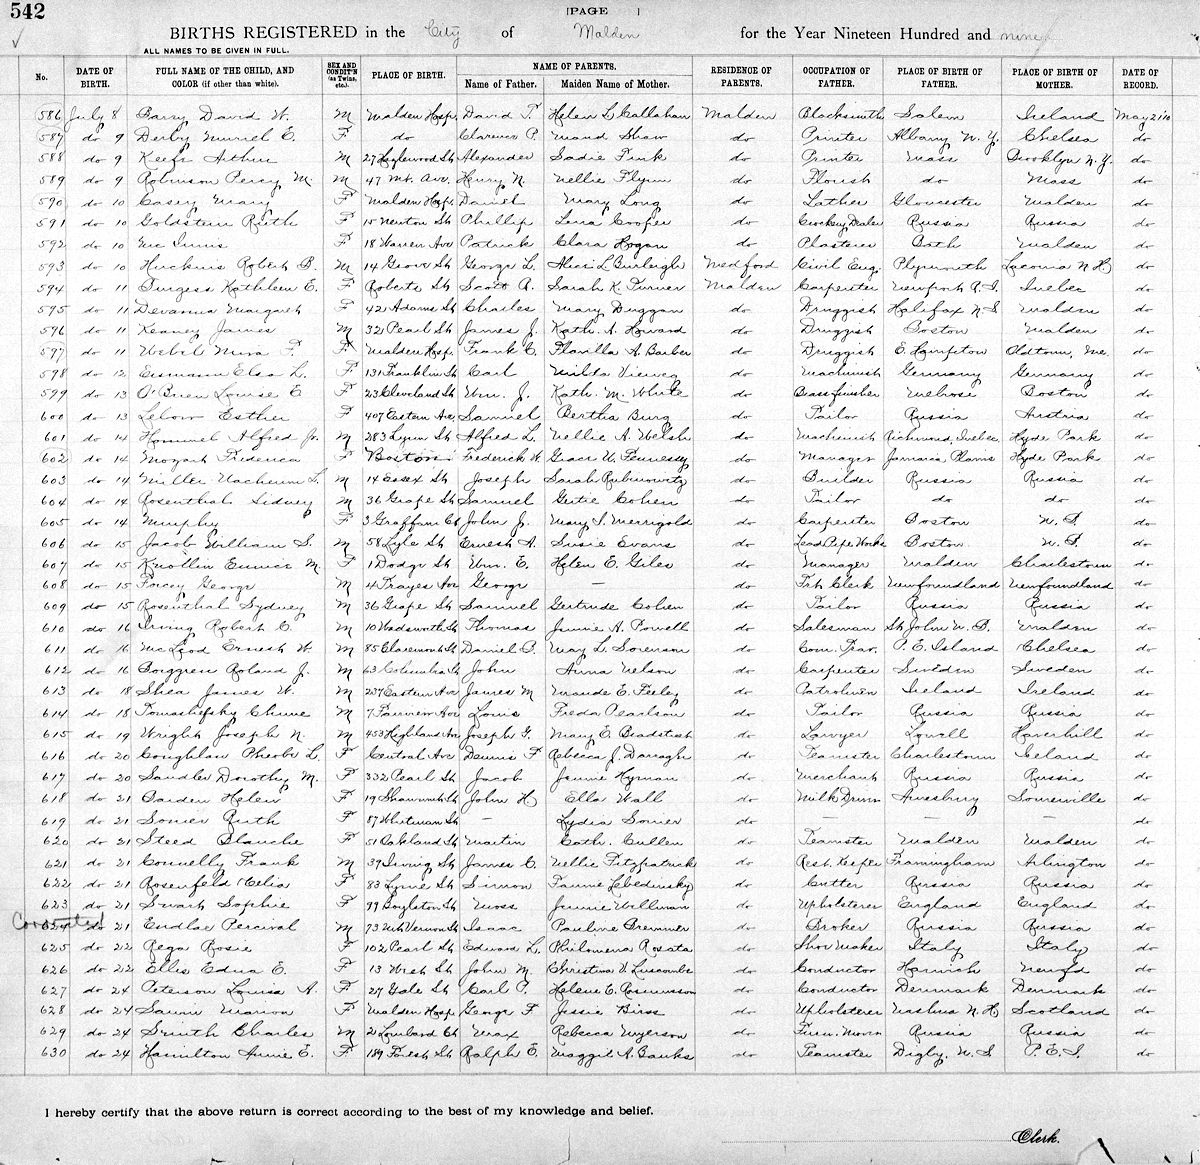 542
[PAGE ]
BIRTHS REGISTERED in the City of Malden for the Year Nineteen Hundred and nine
ALL NAMES TO BE GIVEN IN FULL.
No. DATE OF BIRTH. FULL NAME OF THE CHILD, AND COLOR (if other than white). SEX AND CONDIT'N (as Twins, etc.). PLACE OF BIRTH. NAME OF PARENTS. Name of Father. Maiden Name of Mother. RESIDENCE OF PARENTS. OCCUPATION OF FATHER. PLACE OF BIRTH OF FATHER. PLACE OF BIRTH OF MOTHER. DATE OF RECORD.
586 July 8 Barry David W. M Malden Hosp. David T. Helen L. Callahan Malden Blacksmith Salem Ireland May 2 '10
587 do 9 Derby Muriel E. F do Clarence P. Maud Shaw do Printer Albany N. Y. Chelsea do
588 do 9 Keefe Arthur M 27 St Alexander Sadie Funk do Printer Mass Brooklyn N. Y. do
589 do 9 Robinson Percy M. M 47 Mt. Ave. Henry N. Nellie Flynn do Florist do Mass do
590 do 10 Casey Mary F Malden Hosp. Daniel Mary Long do Lather Gloucester Malden do
591 do 10 Goldstein Ruth F 15 Newton St Phillip Lena Cooper do Crockery Dealer Russia Russia do
592 do 10 Mc Innis F 18 Warren Ave Patrick Clara Hogan do Plasterer Bath Malden do
593 do 10 Huckins Robert B. M 14 Grove St George L. Alice L. Burleigh Medford Civil Eng. Plymouth Laconia N H do
594 do 11 Burgess Kathleen E. F Roberts St Scott A. Sarah K. Turner Malden Carpenter Newport R. I. Quebec do
595 do 11 Devanna Margaret F 42 Adams St Charles Mary Duggan do Druggist Halifax N S Malden do
596 do 11 Keaney James M 321 Pearl St James J. Kath. A. Howard do Druggist Boston Malden do
597 do 11 Webel Mina F. F Malden Hosp. Frank C. Flavilla A. Barber do Druggist E. Hampton Oldtown, Me. do
598 do 12 Eismann Elsa L. F 131 Franklin St Carl Milda Vieweg do Machinist Germany Germany do
599 do 13 O'Brien Louise E F 23 Cleveland St Wm. J. Kath. M. White do Brass finisher Melrose Boston do
600 do 13 Lebow Esther F 407 Eastern Ave Samuel Bertha Burg do Tailor Russia Austria do
601 do 14 Hammel Alfred Jr. M 283 Lynn St Alfred L. Nellie A. Welsh do Machinist Richmond, Quebec Hyde Park do
602 do 14 Mozart Frederica F Boston Frederick W. Grace U. Fennessy do Manager Jamaica Plains Hyde Park do
603 do 14 Miller Nachum L. M 14 Essex St Joseph Sarah Rubinovitz do Builder Russia Russia do
604 do 14 Rosenthal Sidney M 36 Grape St Samuel Gertie Cohen do Tailor do do do
605 do 14 Murphy F 3 Graffam Ct John J. Mary I. Merrigold do Carpenter Boston N. S. do
606 do 15 Jacob William S. M 58 Lyle St Ernest A. Susie Evans do Lead Pipe Works Boston N. S. do
607 do 15 Knollin Eunice M. F 1 Dodge St Wm. E. Helen E. Giles do Manager Malden Charlestown do
608 do 15 Facey George M 4 Ave George — do Frt Clerk Newfoundland Newfoundland do
609 do 15 Rosenthal Sydney M 36 Grape St Samuel Gertrude Cohen do Tailor Russia Russia do
610 do 16 Irving Robert C. M 10 Wadsworth St Thomas Jennie H. Powell do Salesman St John N. B. Malden do
611 do 16 McLeod Ernest W. M 85 Claremont St Daniel S. May L. Sorenson do Com. Trav. P. E. Island Chelsea do
612 do 16 Borggren Roland J. M 63 Columbia St John Anna Nelson do Carpenter Sweden Sweden do
613 do 18 Shea James W. M 237 Eastern Ave James M Maude E. Feeley do Patrolman Ireland Ireland do
614 do 18 Tomashefsky Chune M 7 Fairview Ave Louis Freda Pearlson do Tailor Russia Russia do
615 do 19 Wright Joseph N. M 453 Highland Ave Joseph G. Mary E. Bradstreet do Lawyer Lowell Haverhill do
616 do 20 Coughlan Pheobe L. F Central Ave Dennis F Rebecca J. Darragh do Teamster Charlestown Ireland do
617 do 20 Sandler Dorothy M. F 332 Pearl St Jacob Jennie Hyman do Merchant Russia Russia do
618 do 21 Barden Helen F 19 Shawmut St John H Ella Wall do Milk Driver Amesbury Somerville do
619 do 21 Somer Ruth F 87 Whitman St — Lydia Somer do — — — do
620 do 21 Steed Blanche F 51 Oakland St Martin Cath. Cullen do Teamster Malden Malden do
621 do 21 Connelly Frank M 39 Irving St James C. Nellie Fitzpatrick do Rest. Keeper Framingham Arlington do
622 do 21 Rosenfeld Celia F 83 Lyme St Simon Fannie Lebedinsky do Cutter Russia Russia do
623 do 21 Swartz Sophie F 99 Boylston St Moss Jennie Wellman do Upholsterer England England do
Corrected 624 do 21 Endlar Percival M 73 Mt Vernon St Isaac Pauline Bremmer do Broker Russia Russia do
625 do 22 Rega Rosie F 102 Pearl St Edward L. Philomena Rosata do Shoe Maker Italy Italy do
626 do 22 Ellis Edna E. F 13 West St John M. Christina V. Luscombe do Conductor Harwich Newfd do
627 do 24 Peterson Louisa A. F 27 Gale St Carl P. Helene E. Rasmusson do Conductor Denmark Denmark do
628 do 24 Marion F Malden Hosp George F Jessie Birss do Upholsterer Nashua N. H Scotland do
629 do 24 Smith Charles M 21 Lombard Ct Max Rebecca Myerson do Furn. Mover Russia Russia do
630 do 24 Hamilton Annie E. F 189 Forest St Ralph E. Maggie A. Banks do Teamster Digby, N. S P. E. I. do
I hereby certify that the above return is correct according to the best of my knowledge and belief.
Clerk.